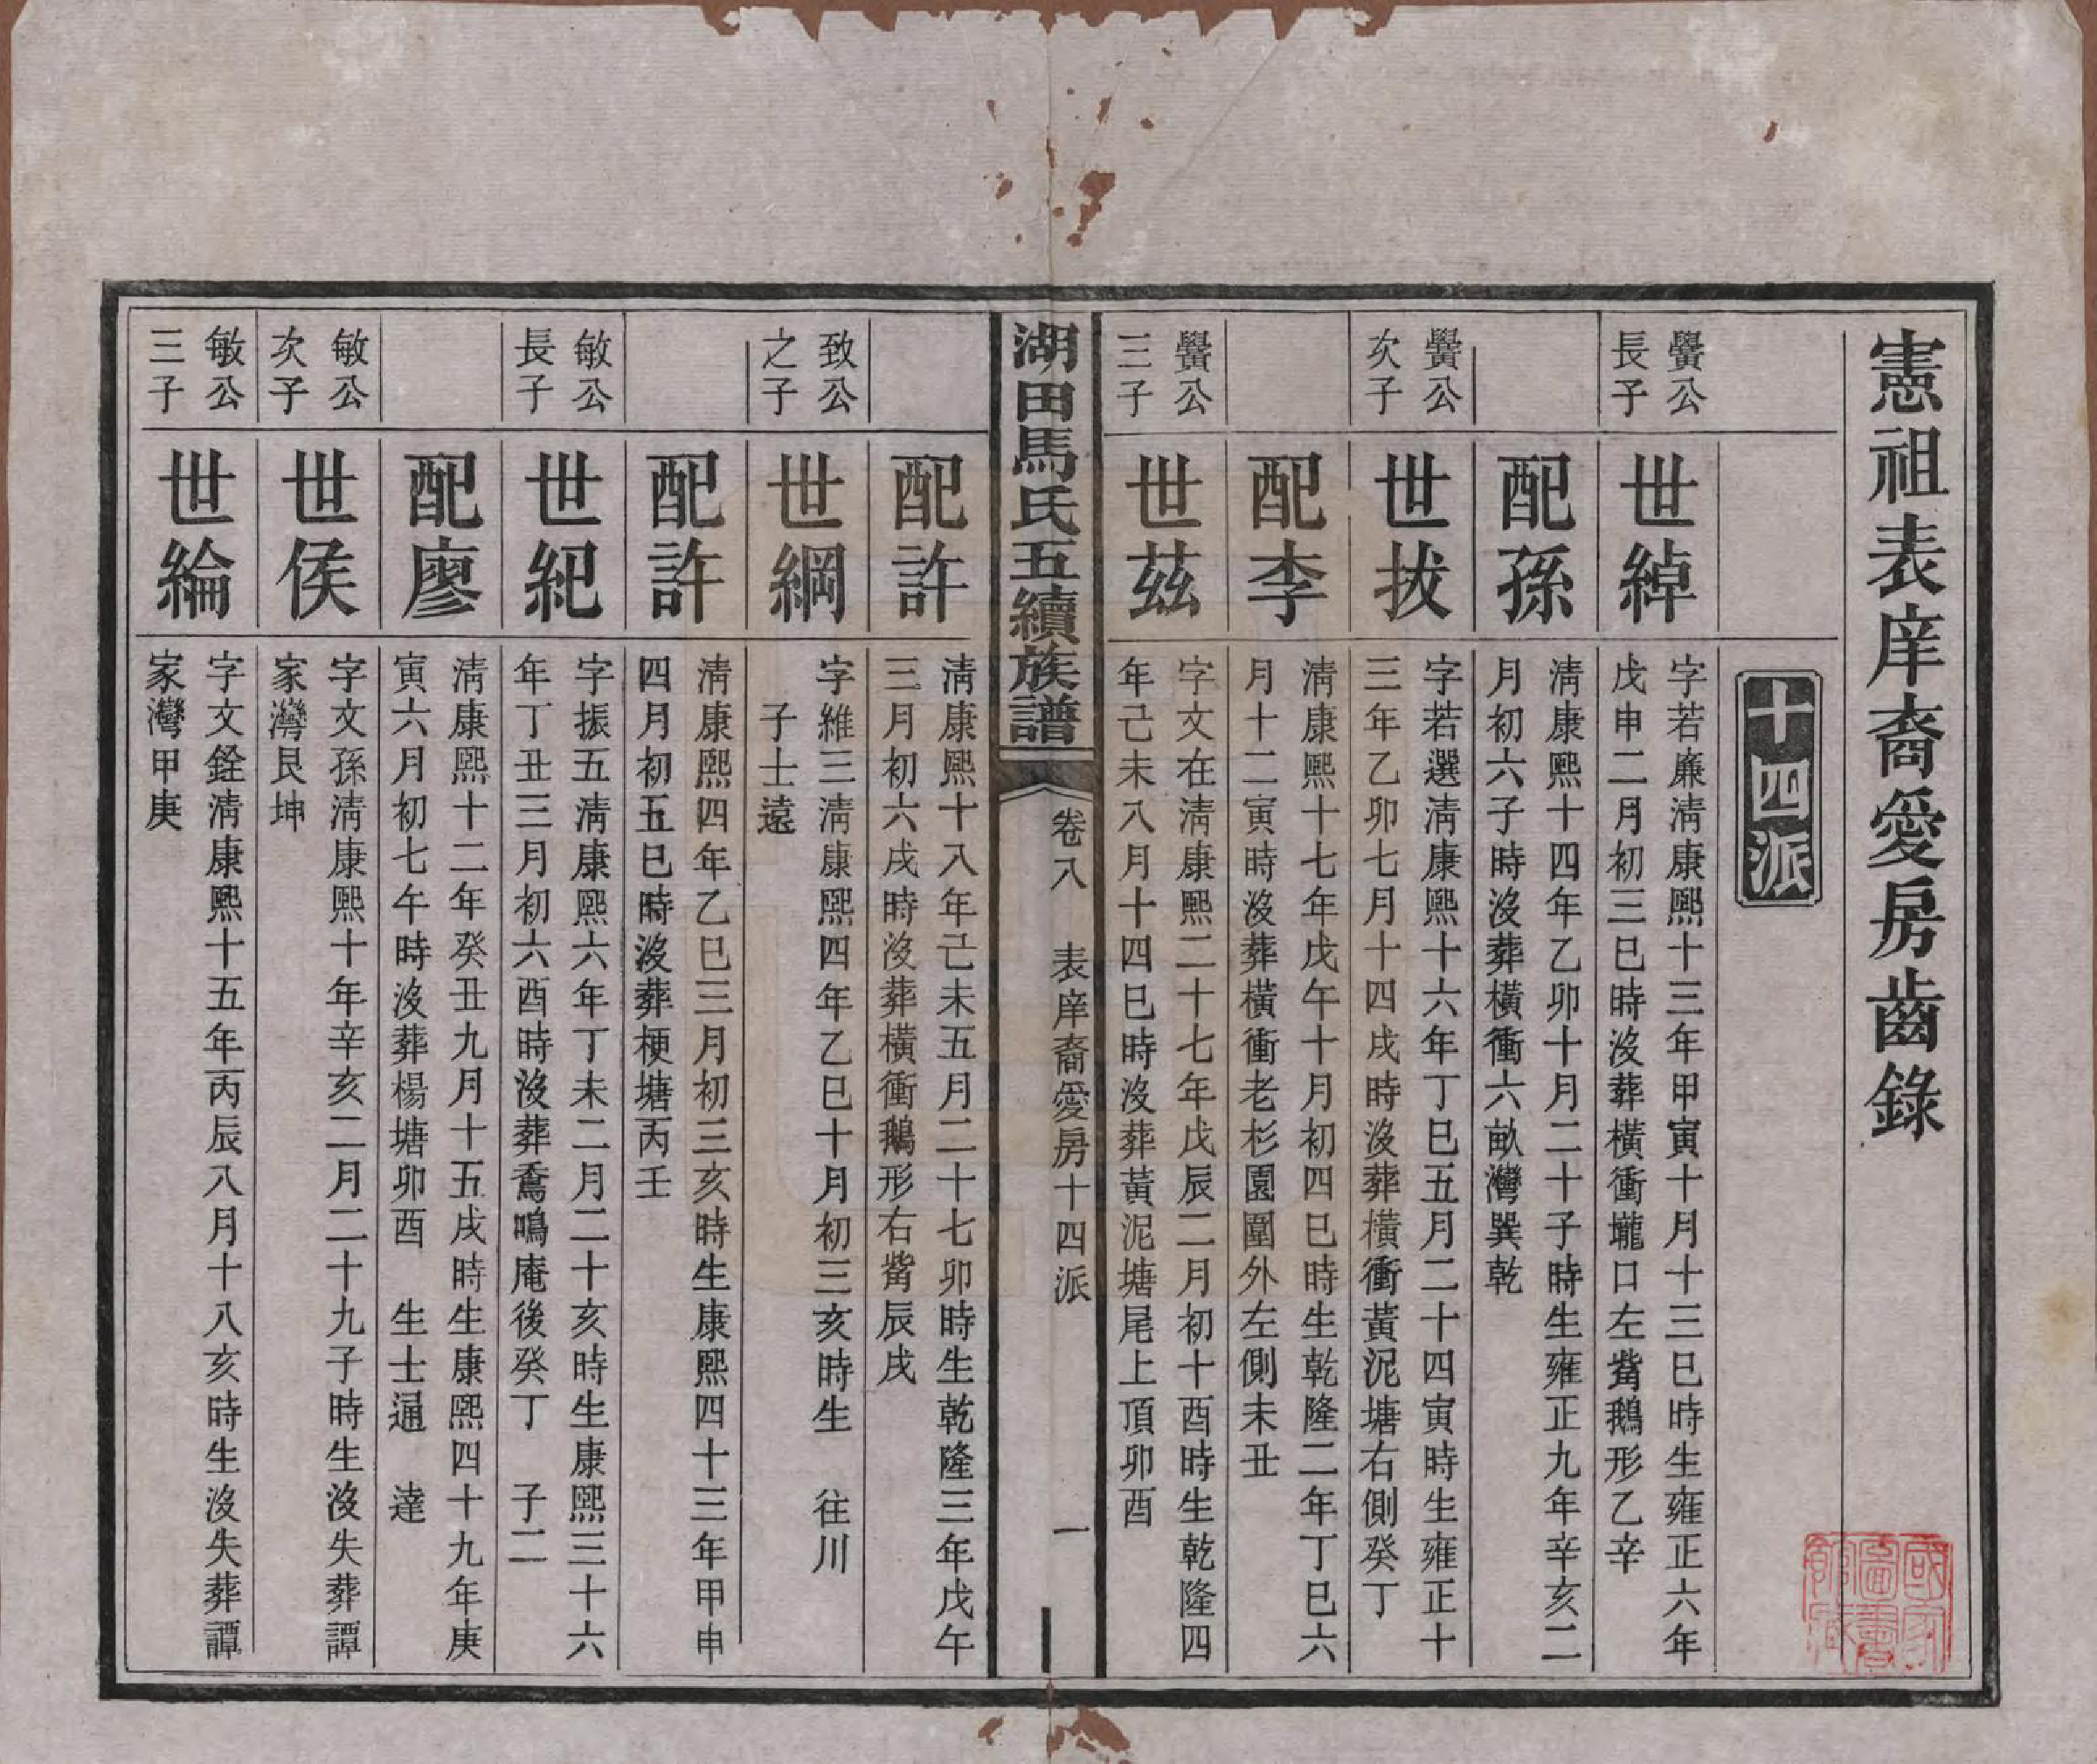 憲祖表庠裔愛房齒錄
十四派
黌公
長子
世綽
字若廉淸康熙十三年甲寅十月十三巳時生雍正六年
戊申二月初三巳時沒葬橫衝壠口左觜鵝形乙辛
配孫
淸康熙十四年乙卯十月二十子時生雍正九年辛亥二
月初六子時沒葬橫衝六畝灣巽乾
黌公
次子
世拔
字若選淸康熙十六年丁巳五月二十四寅時生雍正十
三年乙卯七月十四戌時沒葬橫衝黃泥塘右側癸丁
配李
淸康熙十七年戊午十月初四巳時生乾隆二年丁巳六
月十二寅時沒葬橫衝老杉園圍外左側未丑
黌公
三子
世茲
字文在淸康熙二十七年戊辰二月初十酉時生乾隆四
年己未八月十四巳時沒葬黃泥塘尾上頂卯酉
湖田馬氏五續族譜
卷八 表庠裔愛房十四派 一
配許
淸康熙十八年己未五月二十七卯時生乾隆三年戊午
三月初六戌時沒葬橫衝鵝形右觜辰戌
致公
之子
世綱
字維三淸康熙四年乙巳十月初三亥時生 往川
子士遠
配許
淸康熙四年乙巳三月初三亥時生康熙四十三年甲申
四月初五巳時沒葬梗塘丙壬
敏公
長子
世紀
字振五淸康熙六年丁未二月二十亥時生康熙三十六
年丁丑三月初六酉時沒葬鳴庵後癸丁 子二
配廖
淸康熙十二年癸丑九月十五戌時生康熙四十九年庚
寅六月初七午時沒葬楊塘卯酉 生士逼 達
敏公
次子
世侯
字文孫淸康熙十年辛亥二月二十九子時生沒失葬譚
家灣艮坤
敏公
三子
世綸
字文銓淸康熙十五年丙辰八月十八亥時生沒失葬譚
家灣甲庚
國家圖書館藏